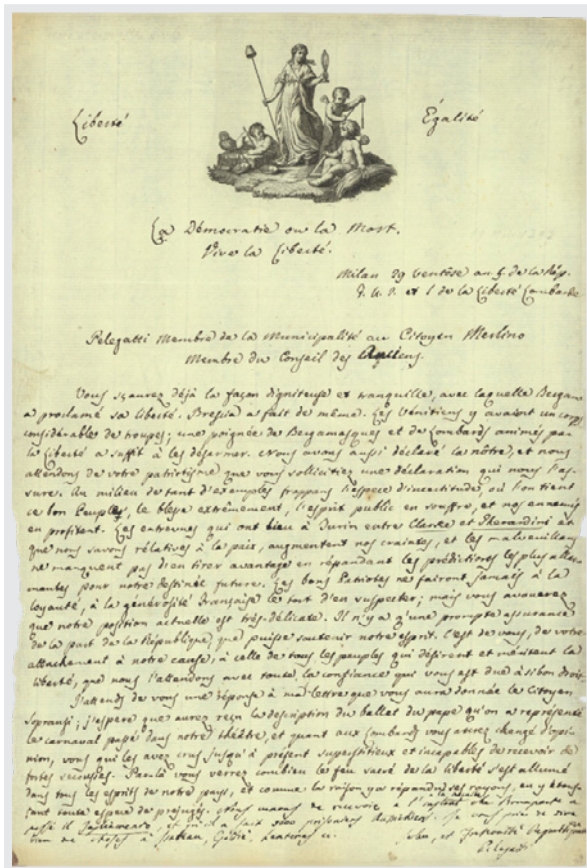 Liberté
Égalité
La Démocratie ou la Mort.
Vive la Liberté.
Milan 29 ventôse an 5. de la Rép.
F. U. I. et I de la Liberté Lombarde
Pelegatti Membre de la Municipalité au Citoyen Merlino
Membre du Conseil des Anciens.
Vous sçaurez déjà la façon digniteuse et tranquille, avec laquelle Bergam
a proclamé sa liberté. Brescia a fait de même. Les Vénitiens y avaient un corps
considérable de troupes; une poignée de Bergamasques et de Lombards animés par
la Liberté a suffit à les désarmer. Nous avons aussi déclaré la nôtre, et nous
attendons de votre patriotisme que vous sollicitiez une déclaration qui nous l'as-
sure. Au milieu de tant d'exemples frappans l'espece d'incertitude, où l'on tient
ce bon Peuple, le blesse extrêmement, l'esprit public en souffre, et nos ennemis
en profitent. Les entrevues qui ont lieu à Turin entre Clarke et et
que nous savons rélatives à la paix, augmentent nos craintes, et les malveillans
ne manquent pas d'en tirer avantage en répandant les prédictions les plus allar-
mantes pour notre destinée future. Les bons Patriotes ne fairont jamais à la
loyauté, à la générosité Française le tort d'en suspecter; mais vous avouerez
que notre position actuelle est très-délicate. Il n'y a qu'une prompte assurance
de la part de la République, que puisse soutenir notre esprit. C'est de vous, de votre
attachement à notre cause, à celle de tous les peuples qui désirent et méritent la
liberté, que nous l'attendons avec toute la confiance qui vous est due à si bon droit.
J'attends de vous une réponse à ma lettre que vous aura donnée le Citoyen
Sopransi; j'espere que aurez reçu la description du ballet du pape qu'on a représenté
le carnaval passé dans notre théâtre, et quant aux Lombards vous aurez changé d'opi-
nion, vous qui les avez crus jusqu'à présent superstitieux et incapables de recevoir de
fortes secousses. Par là vous verrez combien le feu sacré de la liberté s'est allumé
dans tous les esprits de notre pays, et comme la raison y a répandu ses rayons, en y étouf-
fant toute espece de préjugés. Nous venons de recevoir à l'instant la nouvelle que Bonaparte a
passé il, et qu'il a fait prisonniers Autrichiens. Je vous prie de dire
bien de choses à
Salut, et Fraternité
Pelegatti